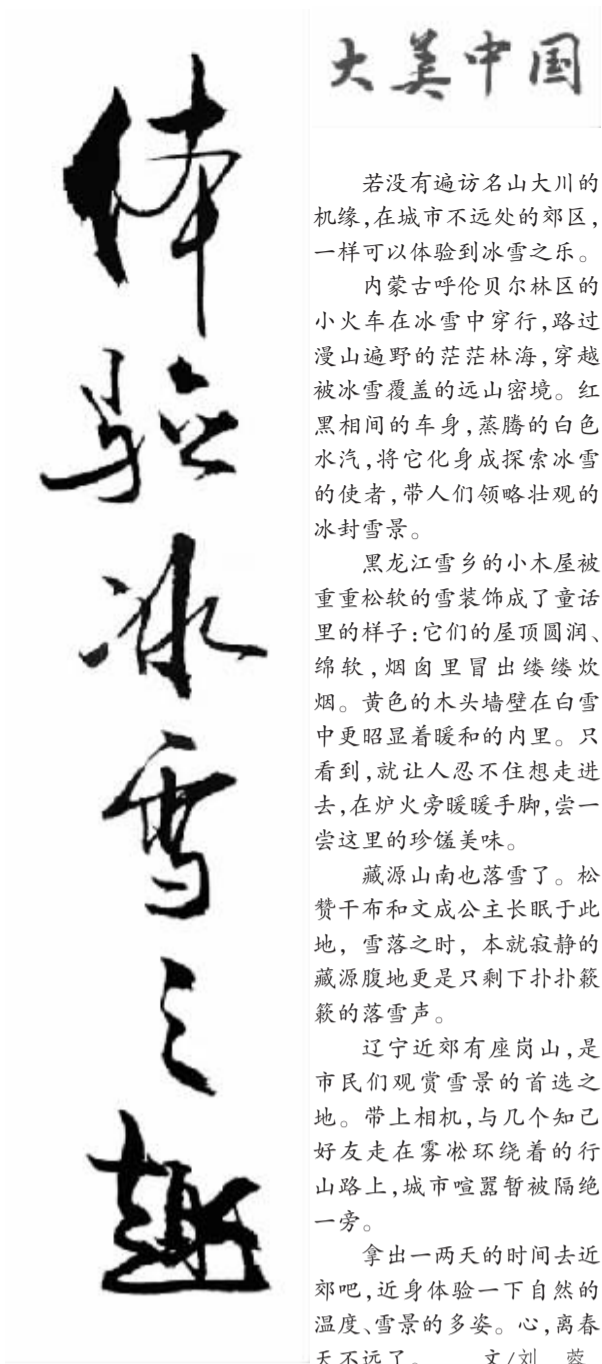 大美中国
体验冰雪之趣
若没有遍访名山大川的
机缘,在城市不远处的郊区,
一样可以体验到冰雪之乐。
内蒙古呼伦贝尔林区的
小火车在冰雪中穿行,路过
漫山遍野的茫茫林海,穿越
被冰雪覆盖的远山密境。红
黑相间的车身,蒸腾的白色
水汽,将它化身成探索冰雪
的使者,带人们领略壮观的
冰封雪景。
黑龙江雪乡的小木屋被
重重松软的雪装饰成了童话
里的样子:它们的屋顶圆润、
绵软,烟囱里冒出缕缕炊
烟。黄色的木头墙壁在白雪
中更昭显着暖和的内里。只
看到,就让人忍不住想走进
去,在炉火旁暖暖手脚,尝一
尝这里的珍馐美味。
藏源山南也落雪了。松
赞干布和文成公主长眠于此
地,雪落之时,本就寂静的
藏源腹地更是只剩下扑扑簌
簌的落雪声。
辽宁近郊有座岗山,是
市民们观赏雪景的首选之
地。带上相机,与几个知己
好友走在雾凇环绕着的行
山路上,城市喧嚣暂被隔绝
一旁。
拿出一两天的时间去近
郊吧,近身体验一下自然的
温度、雪景的多姿。心,离春
天不远了。 文/刘 蓉